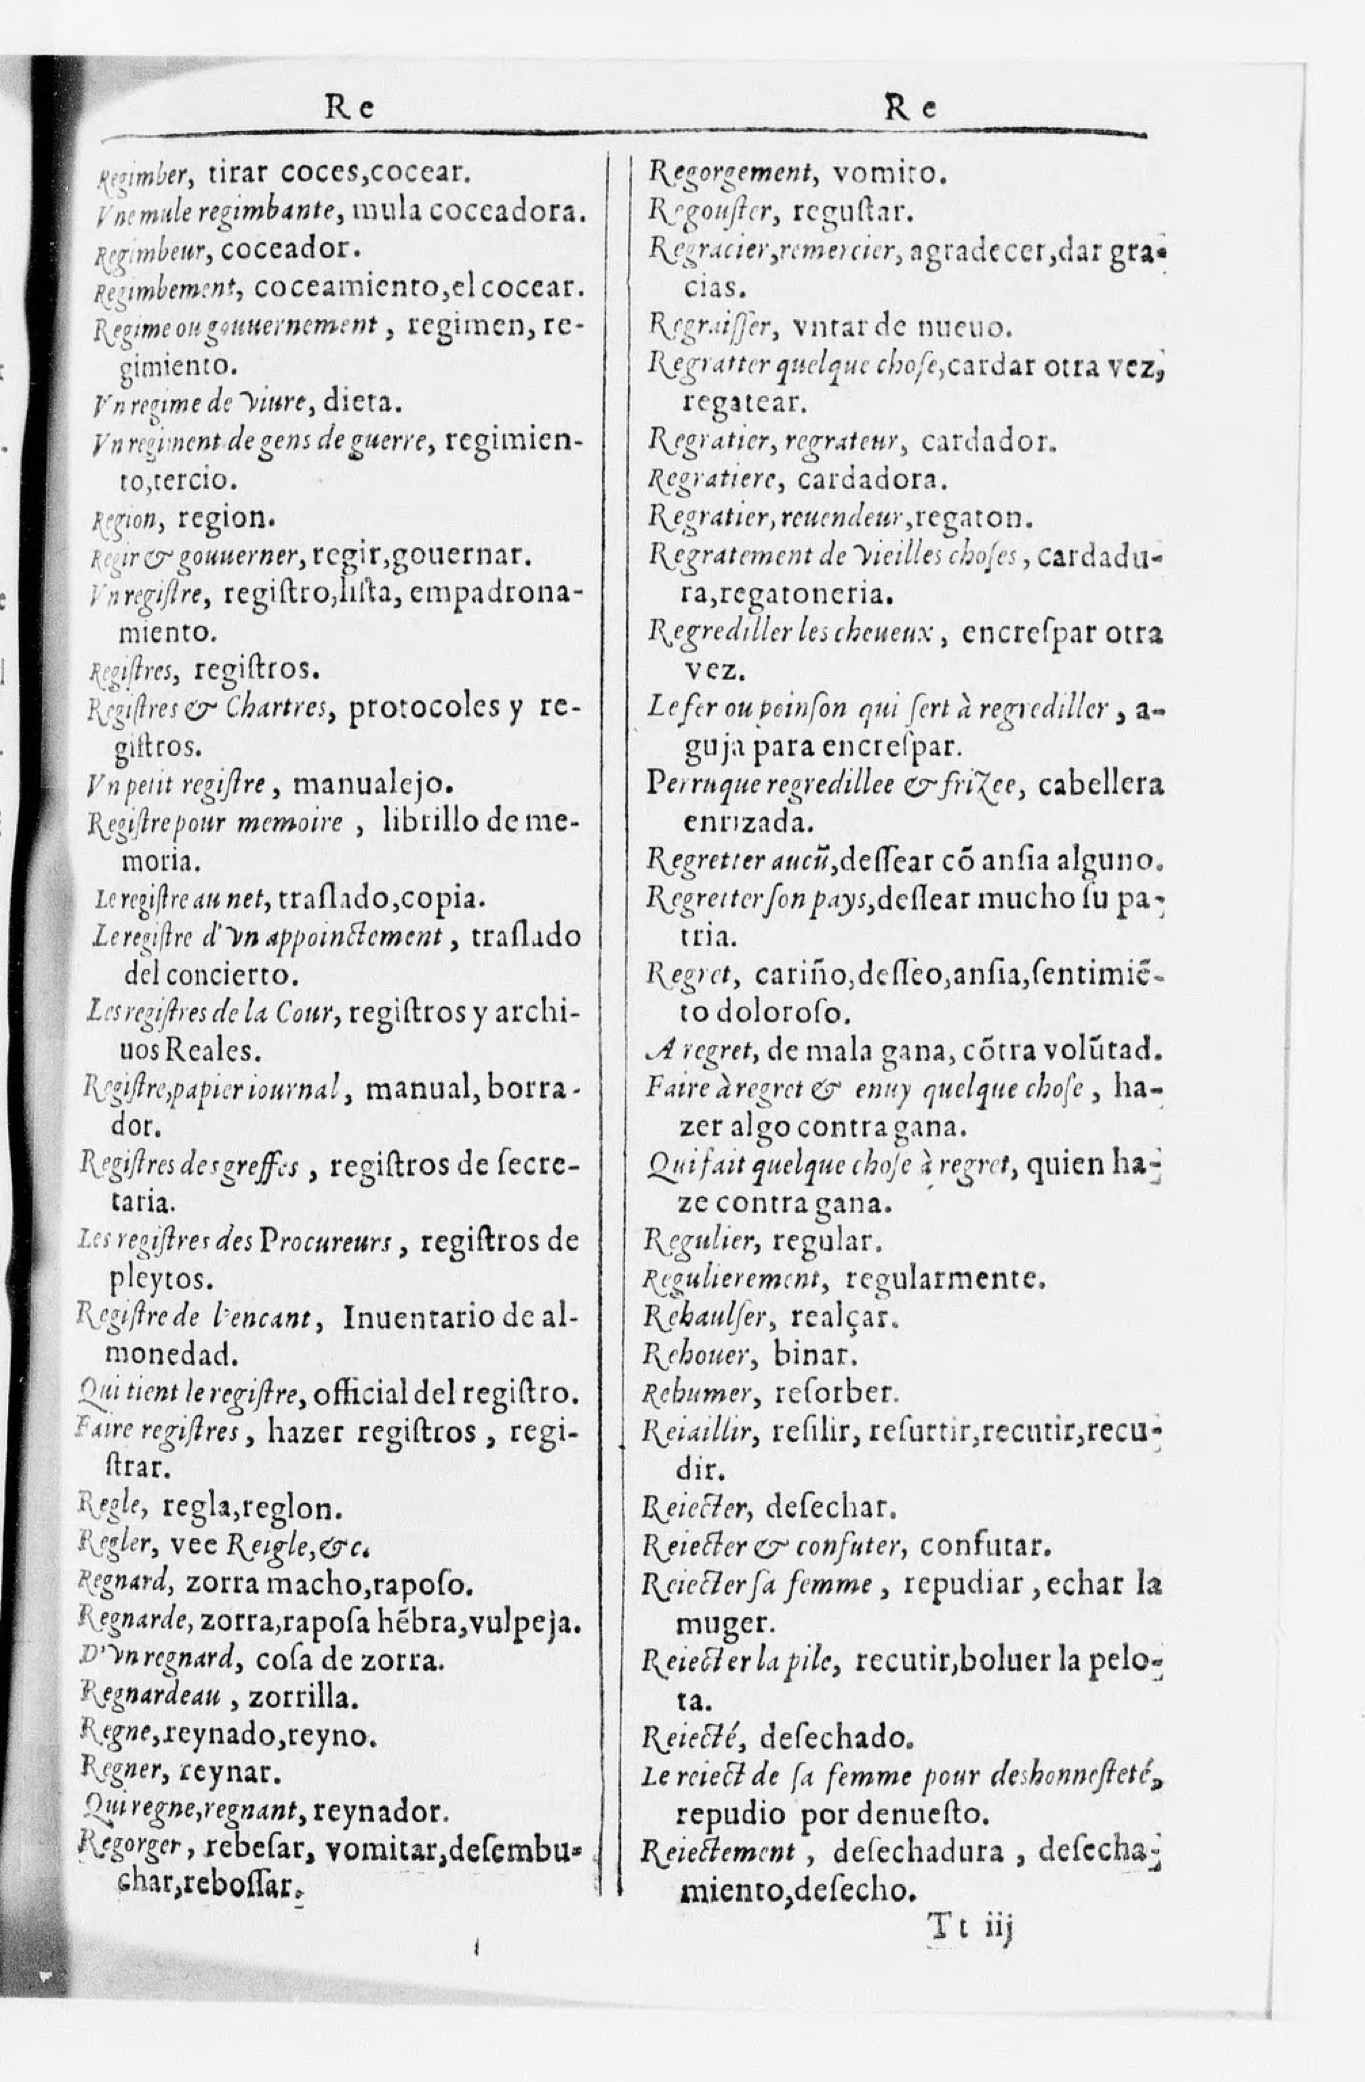 Re
Regimber, tirar coces,cocear.
Vne mule regimbante, mula coceadora.
Regimbeur, coceador.
Regimbement, coceamiento,el cocear.
Regime ou gouuernement, regimen, re-
gimiento.
Vn regime de viure, dieta.
Vn regiment de gens de guerre, regimien-
to,tercio.
Region, region.
Regir & gouuerner, regir,gouernar.
Vn regiſtre, regiſtro,liſta, empadrona-
miento.
Regiſtres, regiſtros.
Regiſtres & Chartres, protocoles y re-
giſtros.
Vn petit regiſtre, manualejo.
Regiſtre pour memoire, librillo de me-
moria.
Le regiſtre au net, traſlado,copia.
Le regiſtre d'vn appoinctement, traſlado
del concierto.
Les regiſtres de la Cour, regiſtros y archi-
uos Reales.
Regiſtre,papier iournal, manual, borra-
dor.
Regiſtres des greffes, regiſtros de ſecre-
taria.
Les regiſtres des Procureurs, regiſtros de
pleytos.
Regiſtre de l'encant, Inuentario de al-
monedad.
Qui tient le regiſtre, official del regiſtro.
Faire regiſtres, hazer regiſtros, regi-
ſtrar.
Regle, regla,reglon.
Regler, vee Reigle,&c.
Regnard, zorra macho,rapoſo.
Regnarde, zorra,rapoſa hẽbra,vulpeja.
D'vn regnard, coſa de zorra.
Regnardeau, zorrilla.
Regne,reynado,reyno.
Regner, reynar.
Qui regne,regnant, reynador.
Regorger, rebeſar, vomitar,deſembu-
char,reboſſar.
Re
Regorgement, vomito.
Regouſter, reguſtar.
Regracier,remercier, agradecer,dar gra-
cias.
Regraiſſer, vntar de nueuo.
Regratter quelque choſe,cardar otra vez,
regatear.
Regratier, regrateur, cardador.
Regratiere, cardadora.
Regratier, reuendeur,regaton.
Regratement de vieilles choſes, cardadu-
ra,regatoneria.
Regrediller les cheueux, encreſpar otra
vez.
Le fer ou poinſon qui ſert à regrediller, a-
guja para encreſpar.
Perruque regredillee & frizee, cabellera
enrizada.
Regretter aucũ,deſſear cõ anſia alguno.
Regretter ſon pays,deſſear mucho ſu pa-
tria.
Regret, cariño,deſſeo,anſia,ſentimiẽ-
to doloroſo.
A regret, de mala gana, cõtra volũtad.
Faire à regret & enuy quelque choſe, ha-
zer algo contra gana.
Qui fait quelque choſe à regret, quien ha-
ze contra gana.
Regulier, regular.
Regulierement, regularmente.
Rehaulſer, realçar.
Rehouer, binar.
Rehumer, reſorber.
Reiaillir, reſilir, reſurtir,recutir,recu-
dir.
Reiecter, deſechar.
Reiecter & confuter, confutar.
Reiecter ſa femme, repudiar, echar la
muger.
Reiecter la pile, recutir,boluer la pelo-
ta.
Reiecté, deſechado.
Le reiect de ſa femme pour deshonneſteté,
repudio por denueſto.
Reiectement, deſechadura, deſecha-
miento,deſecho.
Tt iij